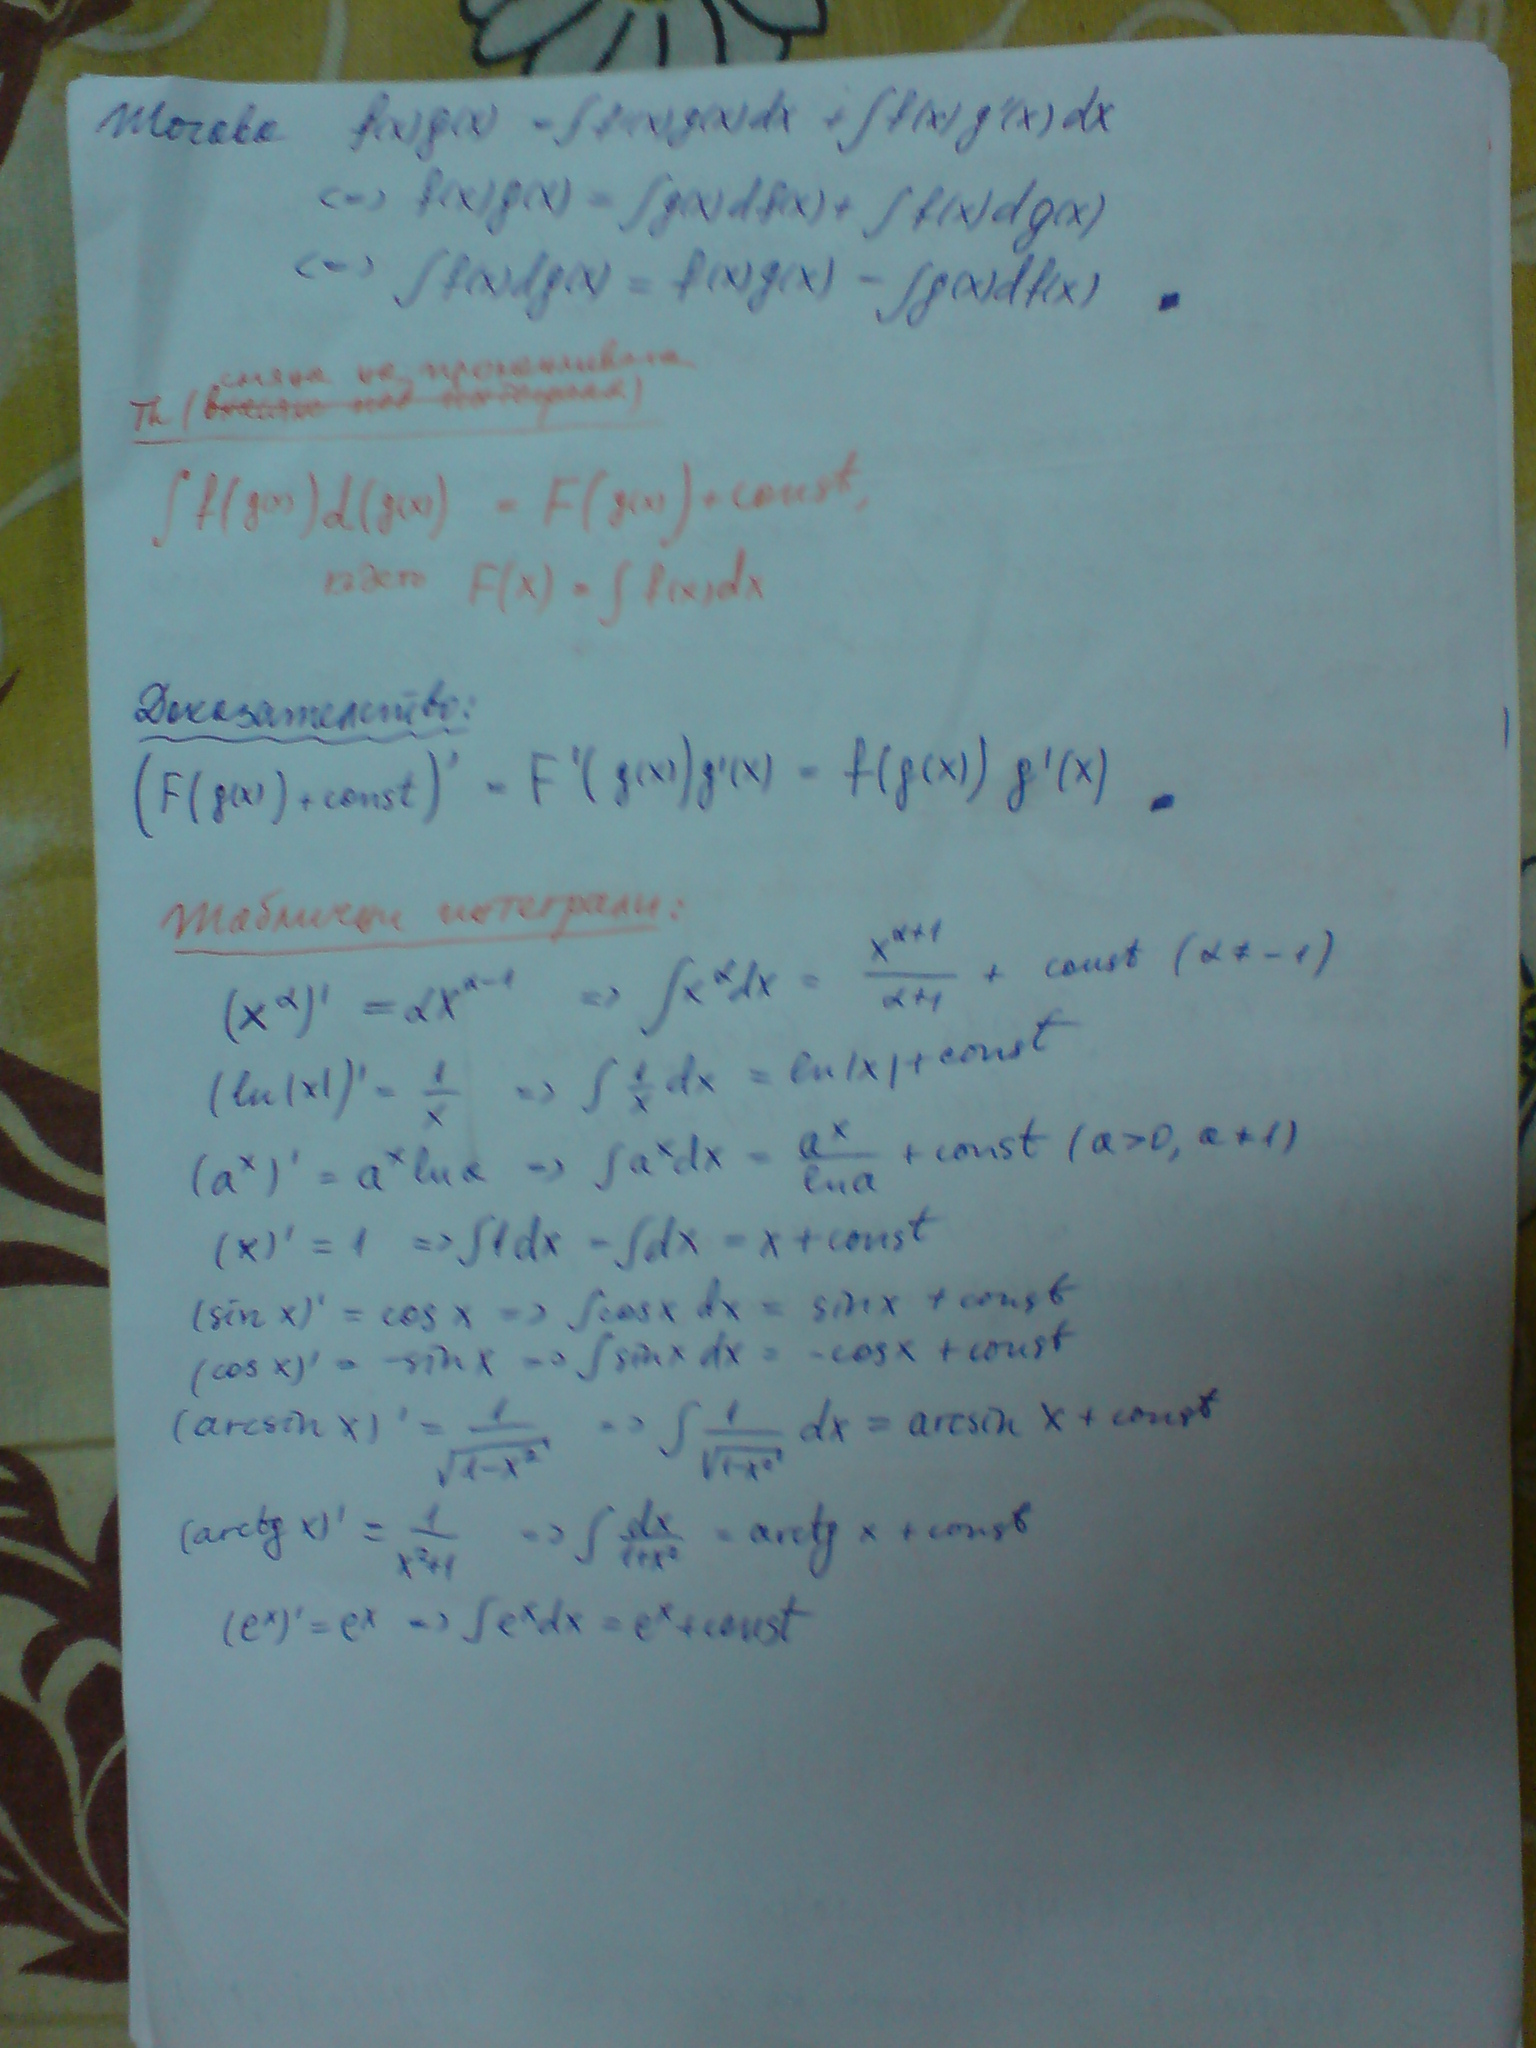 Тогава f(x)g(x) = ∫f'(x)g(x)dx + ∫f(x)g'(x)dx
<=> f(x)g(x) = ∫g(x)df(x) + ∫f(x)dg(x)
<=> ∫f(x)dg(x) = f(x)g(x) - ∫g(x)df(x)
смяна на променливата
Th (внасяне под интеграла)
∫f(g(x))d(g(x)) = F(g(x)) + const,
където F(x) = ∫f(x)dx
Доказателство:
(F(g(x)) + const)' = F'(g(x))g'(x) = f(g(x)) g'(x)
Таблични интеграли:
(x^α)' = αx^(α-1) => ∫x^α dx = x^(α+1)/(α+1) + const (α ≠ -1)
(ln|x|)' = 1/x => ∫1/x dx = ln|x| + const
(a^x)' = a^x ln a => ∫a^x dx = a^x/ln a + const (a>0, a≠1)
(x)' = 1 => ∫1dx = ∫dx = x + const
(sin x)' = cos x => ∫cos x dx = sin x + const
(cos x)' = -sin x => ∫sin x dx = -cos x + const
(arcsin x)' = 1/√(1-x²) => ∫1/√(1-x²) dx = arcsin x + const
(arctg x)' = 1/(x²+1) => ∫dx/(1+x²) = arctg x + const
(e^x)' = e^x => ∫e^x dx = e^x + const